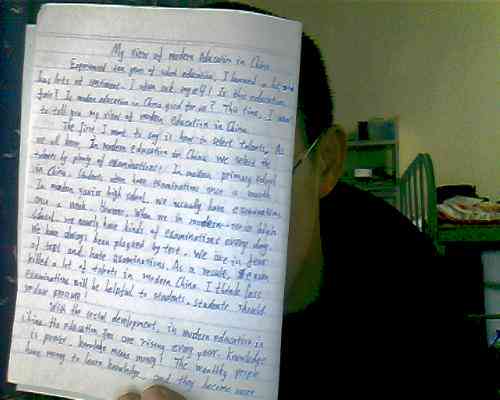 My view of modern education in China
Experienced ten years of school education, I learned a lot and
has lots of sentiment. I often ask myself: Is this education
fair? Is modern education in China good for us? This time, I want
to tell you my view of modern education in China.
The first, I want to say is how to select talents. As
we all know, In modern education in China, we select the
talents by plenty of examinations. In modern primary school
in China, students often have examinations once a month.
In modern junior high school, we usually have examinations
once a week. However, When we in modern senior high
school, we nearly have kinds of examinations every day.
We have always been plagued by test. We are in fear
of test and hate examinations. As a result, exam
killed a lot of talents in modern China. I think less
examinations will be helpful to students. students should
reduce pressure!
With the social development, in modern education in
China, the education fees are rising every year. Knowledge
is power, knowledge means money! The wealthy people
have money to learn knowledge, and they become more